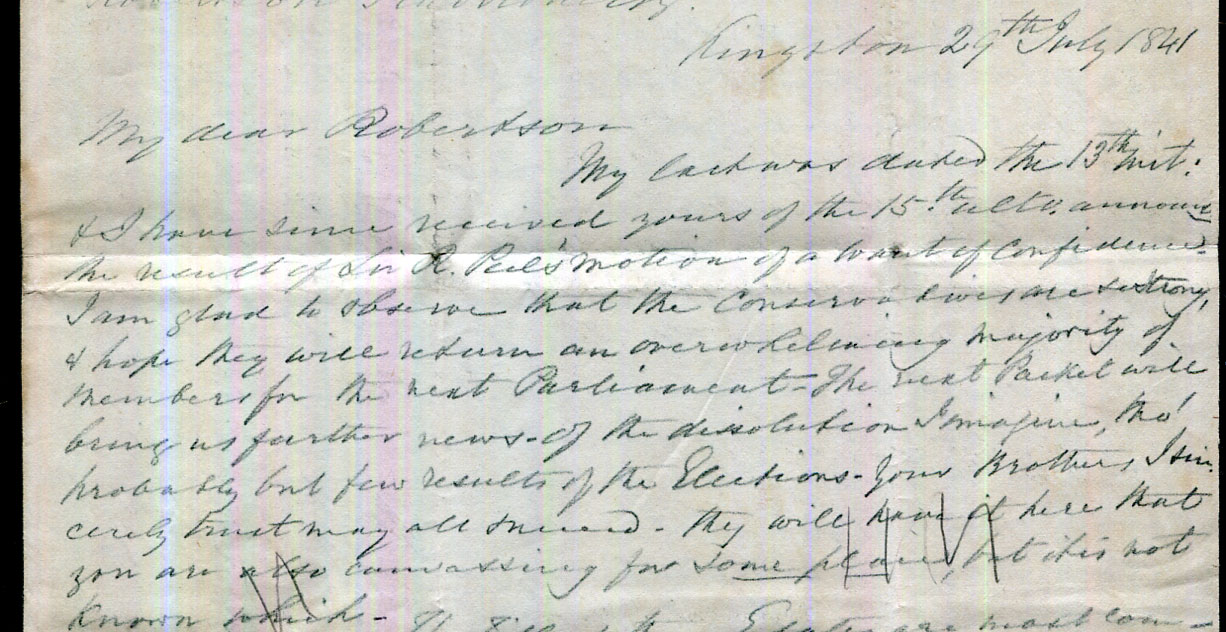 Kingston 29th July 1841
My dear Robertson
My last was dated the 13th inst.
& I have since received yours of the 15th ulto. announcg
the result of Sir R. Peel's motion of a want of confidence.
I am glad to observe that the Conservatives are so strong,
& hope they will return an overwhelming majority of
members for the next Parliament - The next Packet will
bring us further news - of the dissolution I imagine, tho'
probably but few results of the Elections - Your Brothers, I sin:
cerely trust may all succeed - they will have it here that
you are also canvassing for some place, but it is not
known which - the Estates are most com -